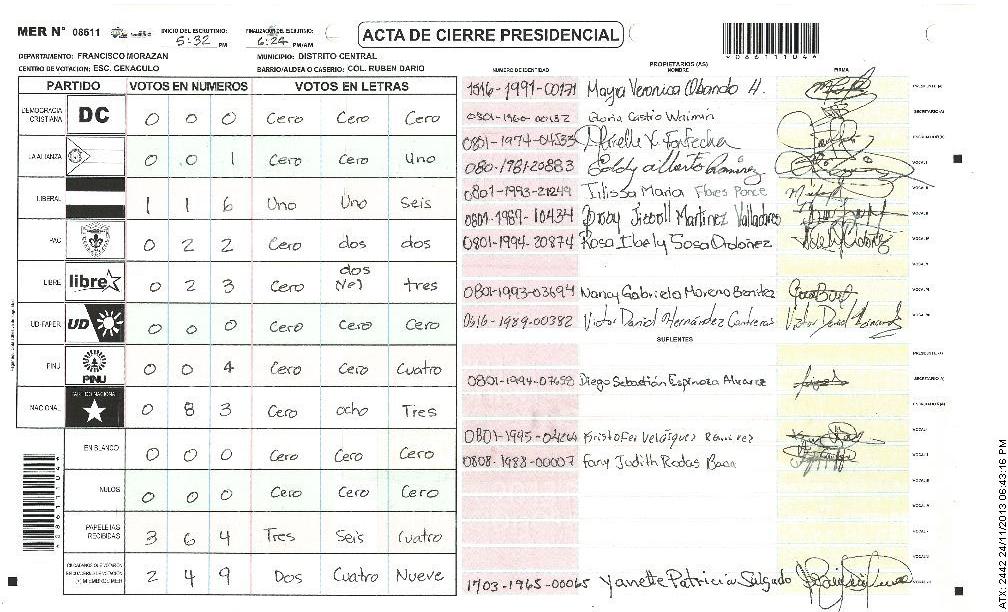 MER N° 08611
INICIO DEL ESCRUTINIO: 5:32 PM
FINALIZACIÓN DEL ESCRUTINIO: 6:24 PM/AM
ACTA DE CIERRE PRESIDENCIAL
DEPARTAMENTO: FRANCISCO MORAZAN
MUNICIPIO: DISTRITO CENTRAL
CENTRO DE VOTACION: ESC. CENACULO
BARRIO/ALDEA O CASERIO: COL. RUBEN DARIO
PARTIDO VOTOS EN NUMEROS VOTOS EN LETRAS
DEMOCRACIA CRISTIANA DC 0 0 0 Cero Cero Cero
LA ALIANZA 0 0 1 Cero Cero Uno
LIBERAL 1 1 6 Uno Uno Seis
PAC 0 2 2 Cero dos dos
LIBRE libre 0 2 3 Cero dos tres
UD-FAPER UD 0 0 0 Cero Cero Cero
PINU PINU 0 0 4 Cero Cero Cuatro
NACIONAL PARTIDO NACIONAL 0 8 3 Cero ocho Tres
EN BLANCO 0 0 0 Cero Cero Cero
NULOS 0 0 0 Cero Cero Cero
PAPELETAS RECIBIDAS 3 6 4 Tres Seis Cuatro
2 4 9 Dos Cuatro Nueve
PROPIETARIOS (AS)
NUMERO DE IDENTIDAD NOMBRE FIRMA
Mayra Veronica Obando H. PRESIDENTE (A)
Gloria Castro SECRETARIO (A)
0801-1974-04533 Mirelle Y. Fonfecha ESCRUTADOR (A)
alberto VOCAL I
0801-1993-21249 Maria Flores Ponce VOCAL II
0801-1989-10434 Martinez Valladares VOCAL III
0801-1994-20874 Rosa Ibely Sosa Ordoñez VOCAL IV
VOCAL V
0801-1993-03694 Nancy Gabriela Moreno Benitez VOCAL VI
0616-1989-00382 Victor Daniel Hernández Contreras
SUPLENTES
PRESIDENTE (A)
0801-1994-07658 Diego Sebastián Espinoza Alvarez SECRETARIO (A)
ESCRUTADOR (A)
Kristofer Velásquez Ramirez VOCAL I
0808-1988-00007 Fany Judith Rodas Baca VOCAL II
VOCAL III
VOCAL IV
VOCAL V
1703-1965-00065 Yanette Patricia Salgado
ATX: 2442 24/11/2013 06:43:16 PM